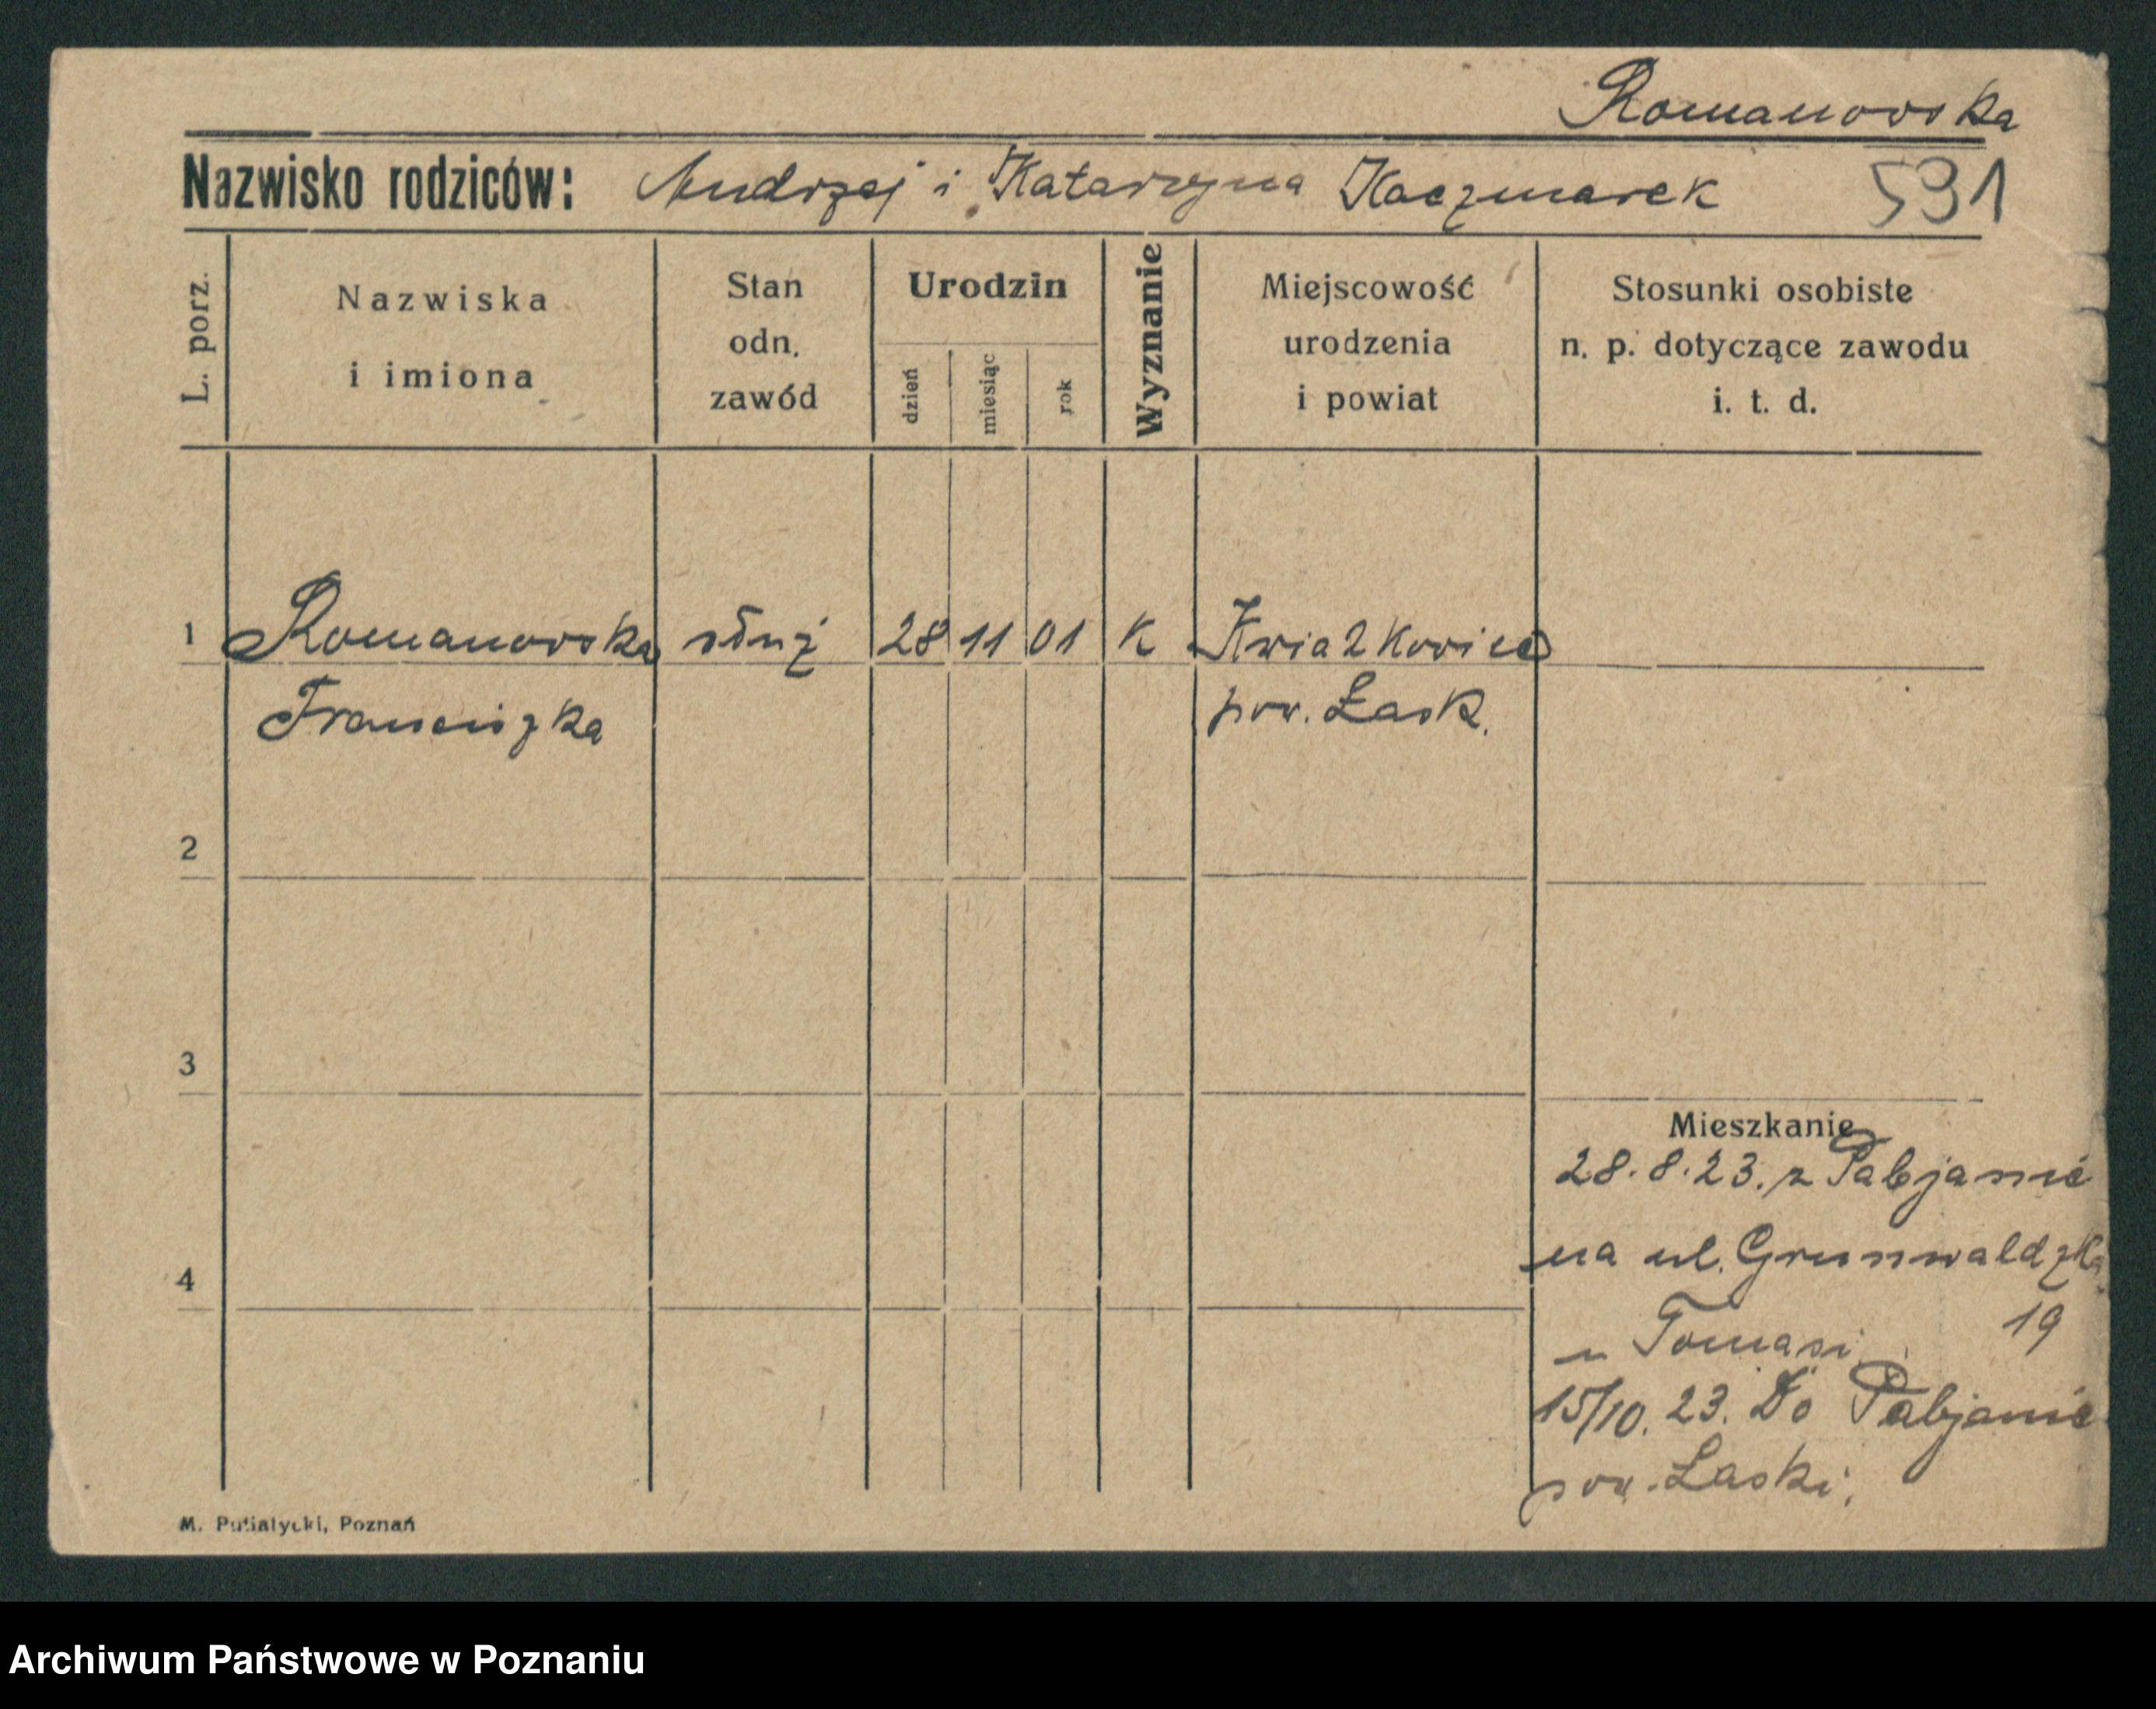 Romanowska
Nazwisko rodziców: Andrzej i Katarzyna Kaczmarek 591
L. porz.
Nazwiska
i imiona
Stan
odn.
zawód
Urodzin
dzień
miesiąc
rok
Wyznanie
Miejscowość
urodzenia
i powiat
Stosunki osobiste
n. p. dotyczące zawodu
i. t. d.
1 Romanowska służ 28 11 01 K Kwiatkowice
Franciszka pow. Łask.
2
3
Mieszkanie
28.8.23. z Pabjanic
na ul. Grunwaldzka
4
19
u Tomasi
15/10. 23. Do Pabjanic
pow. Łaski.
M. Putiatycki, Poznań
Archiwum Państwowe w Poznaniu